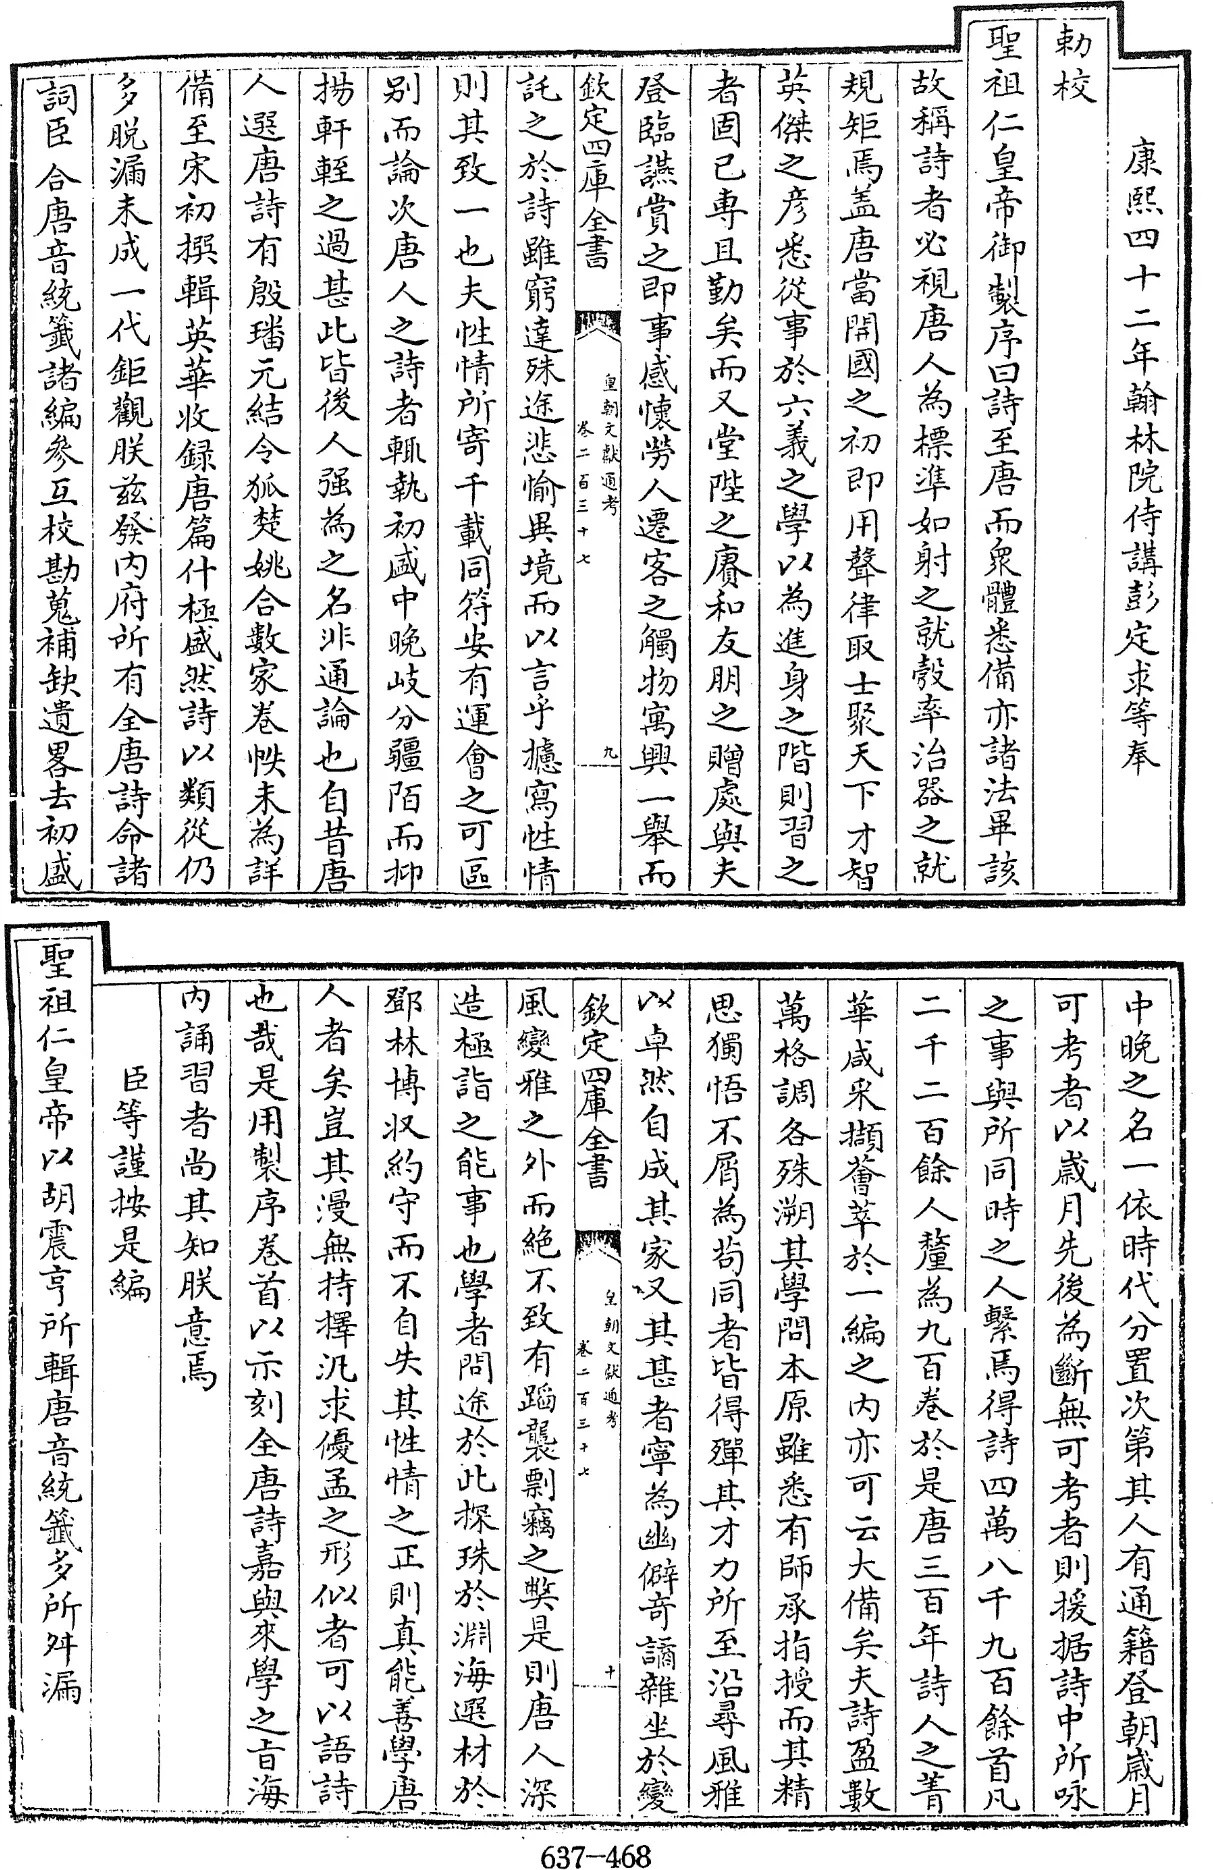 康熙四十二年翰林院侍講彭定求等奉
勅校
聖祖仁皇帝御製序曰詩至唐而衆體悉備亦諸法畢該
故稱詩者必視唐人為標準如射之就彀率治器之就
規矩焉盖唐當開國之初即用聲律取士聚天下才智
英傑之彦悉從事於六義之學以為進身之階則習之
者固已專且勤矣而又堂陛之賡和友朋之贈處與夫
登臨讌賞之即事感懷勞人遷客之觸物寓興一舉而
欽定四庫全書
皇朝文獻通考
卷二百三十七
九
託之於詩雖窮達殊途悲愉異境而以言乎攄寫性情
則其致一也夫性情所寄千載同符安有運會之可區
别而論次唐人之詩者輒執初盛中晚岐分疆陌而抑
揚軒輊之過甚此皆後人强為之名非通論也自昔唐
人選唐詩有殷璠元結令狐楚姚合數家卷帙未為詳
備至宋初撰輯英華收録唐篇什極盛然詩以類從仍
多脱漏未成一代鉅觀朕兹發内府所有全唐詩命諸
詞臣合唐音統籤諸編參互校勘蒐補缺遺畧去初盛
中晚之名一依時代分置次第其人有通籍登朝歳月
可考者以歳月先後為斷無可考者則援据詩中所咏
之事與所同時之人繫焉得詩四萬八千九百餘首凡
二千二百餘人釐為九百卷於是唐三百年詩人之菁
華咸采擷薈萃於一編之内亦可云大備矣夫詩盈數
萬格調各殊溯其學問本原雖悉有師承指授而其精
思獨悟不屑為茍同者皆得殫其才力所至沿尋風雅
以卓然自成其家又其甚者寧為幽僻奇譎雜坐於變
欽定四庫全書
皇朝文獻通考
卷二百三十七
十
風變雅之外而絶不致有蹈襲剽竊之弊是則唐人深
造極詣之能事也學者問途於此探珠於淵海選材於
鄧林博収約守而不自失其性情之正則真能善學唐
人者矣豈其漫無持擇汎求優孟之形似者可以語詩
也哉是用製序卷首以示刻全唐詩嘉與來學之旨海
内誦習者尚其知朕意焉
臣等謹按是編
聖祖仁皇帝以胡震亨所輯唐音統籤多所舛漏
637-468